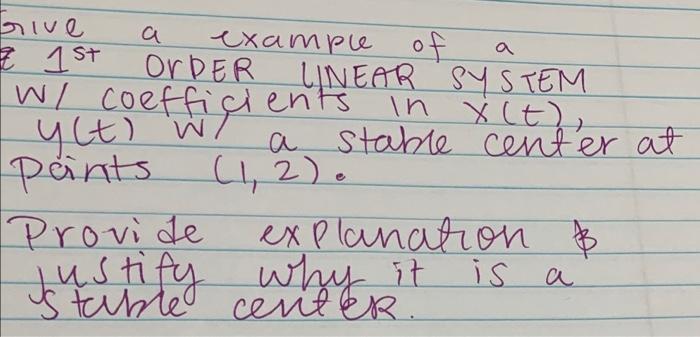 Give a example of a
1st ORDER LINEAR SYSTEM
W/ coefficients in X(t),
y(t) W/ a stable center at
points (1,2).
Provide explanation &
justify why it is a
stable center.